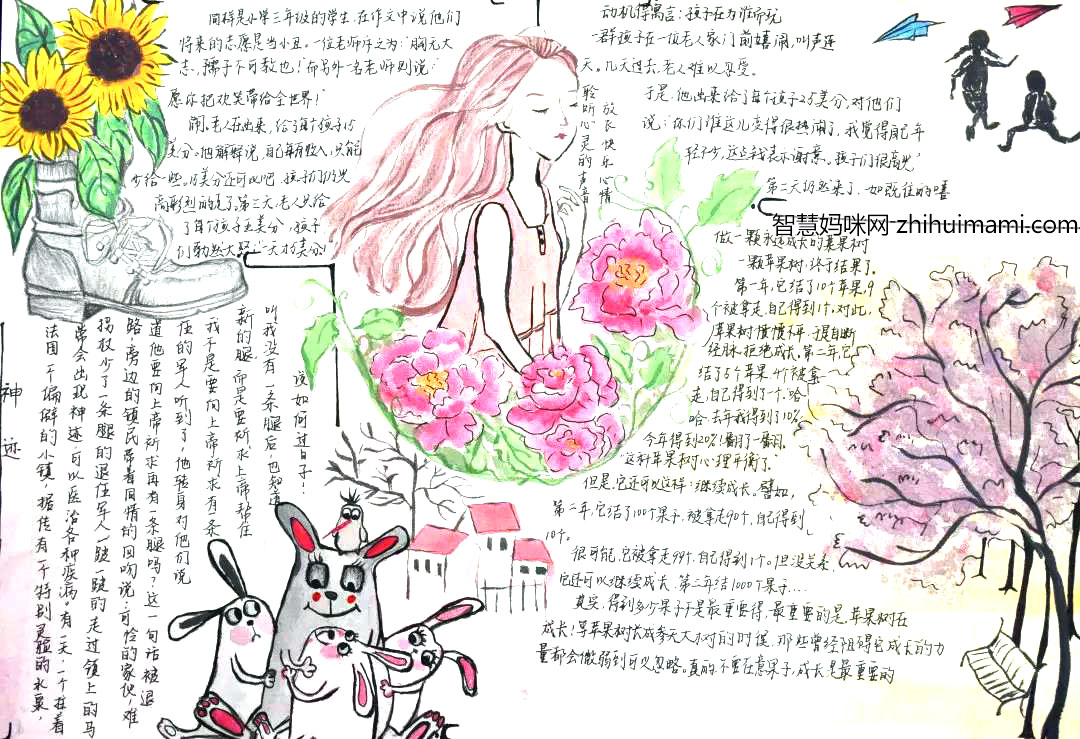 同样是小学三年级的学生,在作文中说他们
将来的志愿是当小丑。一位老师斥之为:"胸无大
志,孺子不可教也!"而另外一名老师则说:"
愿你把欢笑带给全世界!"
动机得寓言:孩子在为谁而玩
一群孩子在一位老人家门前嬉闹,叫声连
天。几天过去,老人难以忍受。
于是,他出来给了每个孩子25美分,对他们
说:"你们让这儿变得很热闹了,我觉得自己年
轻不少,这点钱表示谢意。孩子们很高兴
第二天仍然来了,一如既往的嘻
闹。老人在出来,给了每个孩子15
美分。他解释说,自己没有收入,只能
少给一些。15美分还可以吧,孩子们仍兴
高彩烈的走了。第三天,老人只给
了每个孩子5美分,孩子
们勃然大怒,一天才5美分!
放飞快乐心情
聆听心灵的声音
智慧妈咪网-zhihuimami.com
做一颗永远成长的苹果树
一颗苹果树,终于结果了。
第一年,它结了10个苹果,9
个被拿走,自己得到1个。对此,
苹果树愤愤不平,于是自断
经脉,拒绝成长。第二年,它
结了5个苹果,4个被拿
走,自己得到了一个。哈
哈,去年我得到了10%
今年得到20%!翻了一翻。
"这科苹果树心理平衡了。
但是,它还可以这样:继续成长。譬如,
第二年,它结了100个果子,被拿走90个,自己得到
10个。
很可能,它被拿走99个,自己得到1个。但没关系,
它还可以继续成长,第三年结1000个果子....
其实,得到多少果子不是最重要得,最重要的是,苹果树在
成长!等苹果树长成参天大树的时候,那些曾经阻碍它成长的力
量都会微弱到可以忽略。真的,不要在意果子,成长是最重要的
神迹
法国一个偏僻的小镇,据传有一个特别灵验的水泉,
常会出现神迹,可以医治各种疾病。有一天,一个拄着
拐杖,少了一条腿的退伍军人,一跛一跛的走过镇上的马
路,旁边的镇民带着同情的回吻说:可怜的家伙,难
道他要向上帝祈求再有一条腿吗?这一句话被退
伍的军人听到了,他转身对他们说
我不是要向上帝祈求有一条
新的腿,而是要祈求上帝帮住
叫我没有一条腿后,也知道
说如何过日子!